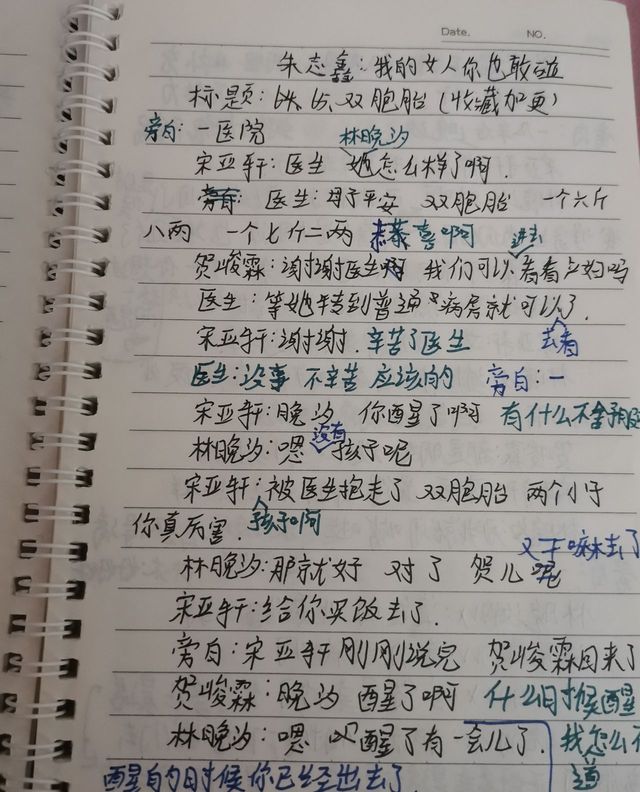 Date. NO.
朱志鑫:我的女人你也敢碰
标题:64.65.双胞胎(收藏加更)
旁白:一医院 林晚汐
宋亚轩:医生 她怎么样了啊.
医生:母子平安 双胞胎 一个六斤
八两 一个七斤二两 恭喜啊
进去
贺峻霖:谢谢医生啊 我们可以看看产妇吗
医生:等她转到普通病房就可以了.
宋亚轩:谢谢.辛苦了医生 去看
医生:没事 不辛苦 应该的 旁白:一
宋亚轩:晚汐 你醒了啊 有什么不舒服
没有
林晚汐:嗯 孩子呢
宋亚轩:被医生抱走了 双胞胎 两个小子
你真厉害.孩子啊
又干嘛去了
林晚汐:那就好 对了 贺儿呢
宋亚轩:给你买饭去了.
旁白:宋亚轩刚刚说完 贺峻霖回来了
贺峻霖:晚汐 醒了啊 什么时候醒
林晚汐:嗯 醒了有一会儿了.我怎么不
醒的时候你已经出去了 道